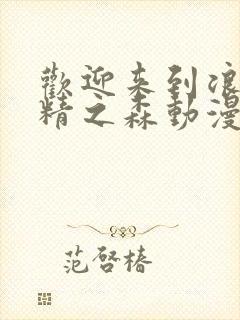 歡迎来到浪
精之森動漫
范啓椿